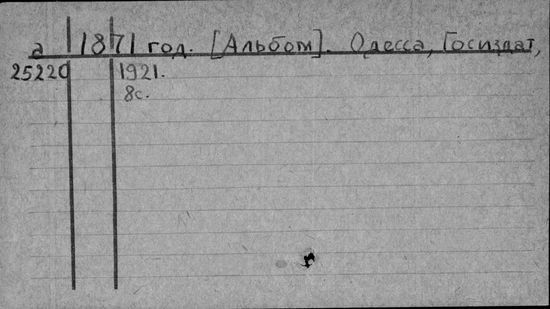 а 1871 год. [Альбом]. Одесса, Госиздат,
25220 1921.
8с.